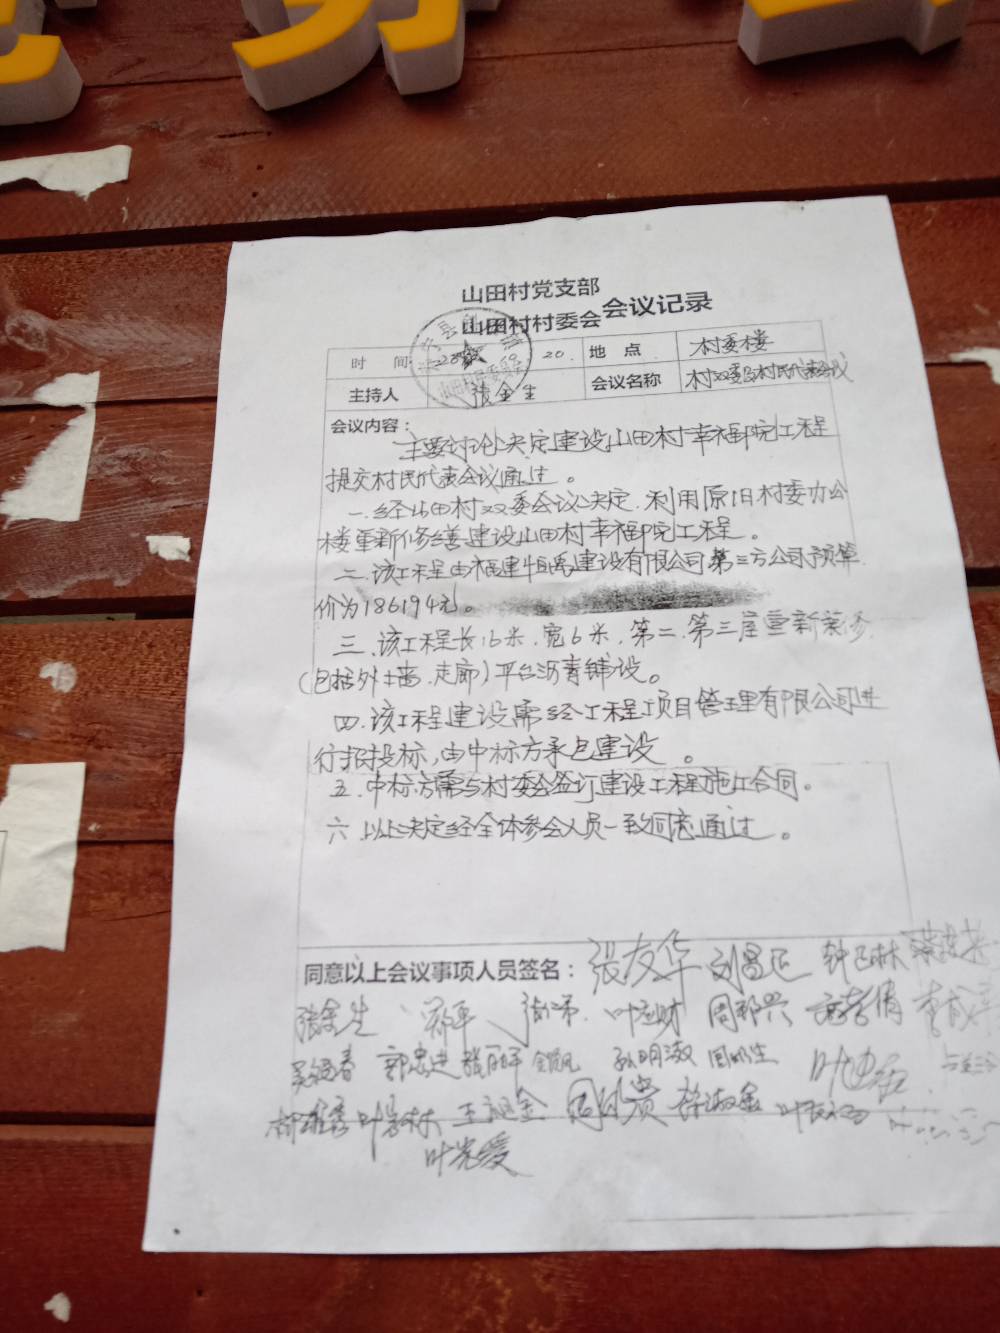 山田村党支部
山田村村委会会议记录
时 间 20 地 点 村委楼
主持人 张金生 会议名称 村双委及村民代表会议
会议内容：
主要讨论决定建设山田村幸福院工程
提交村民代表会议通过。
一.经山田村双委会议决定.利用原旧村委办公
楼重新修缮建设山田村幸福院工程。
二.该工程由福建恒禹建设有限公司第三方公司预算
价为186194元。
三.该工程长16米.宽6米.第二.第三层重新装修
(包括外墙.走廊)平台沥青铺设。
四.该工程建设需经工程项目管理有限公司进
行招投标,由中标方承包建设。
五.中标方需与村委会签订建设工程施工合同。
六.以上决定经全体参会人员一致同意通过。
同意以上会议事项人员签名：张友华 刘昌远
张金生 郑平 叶应财 周邦兴
郭忠进 孙明淑
叶光爱